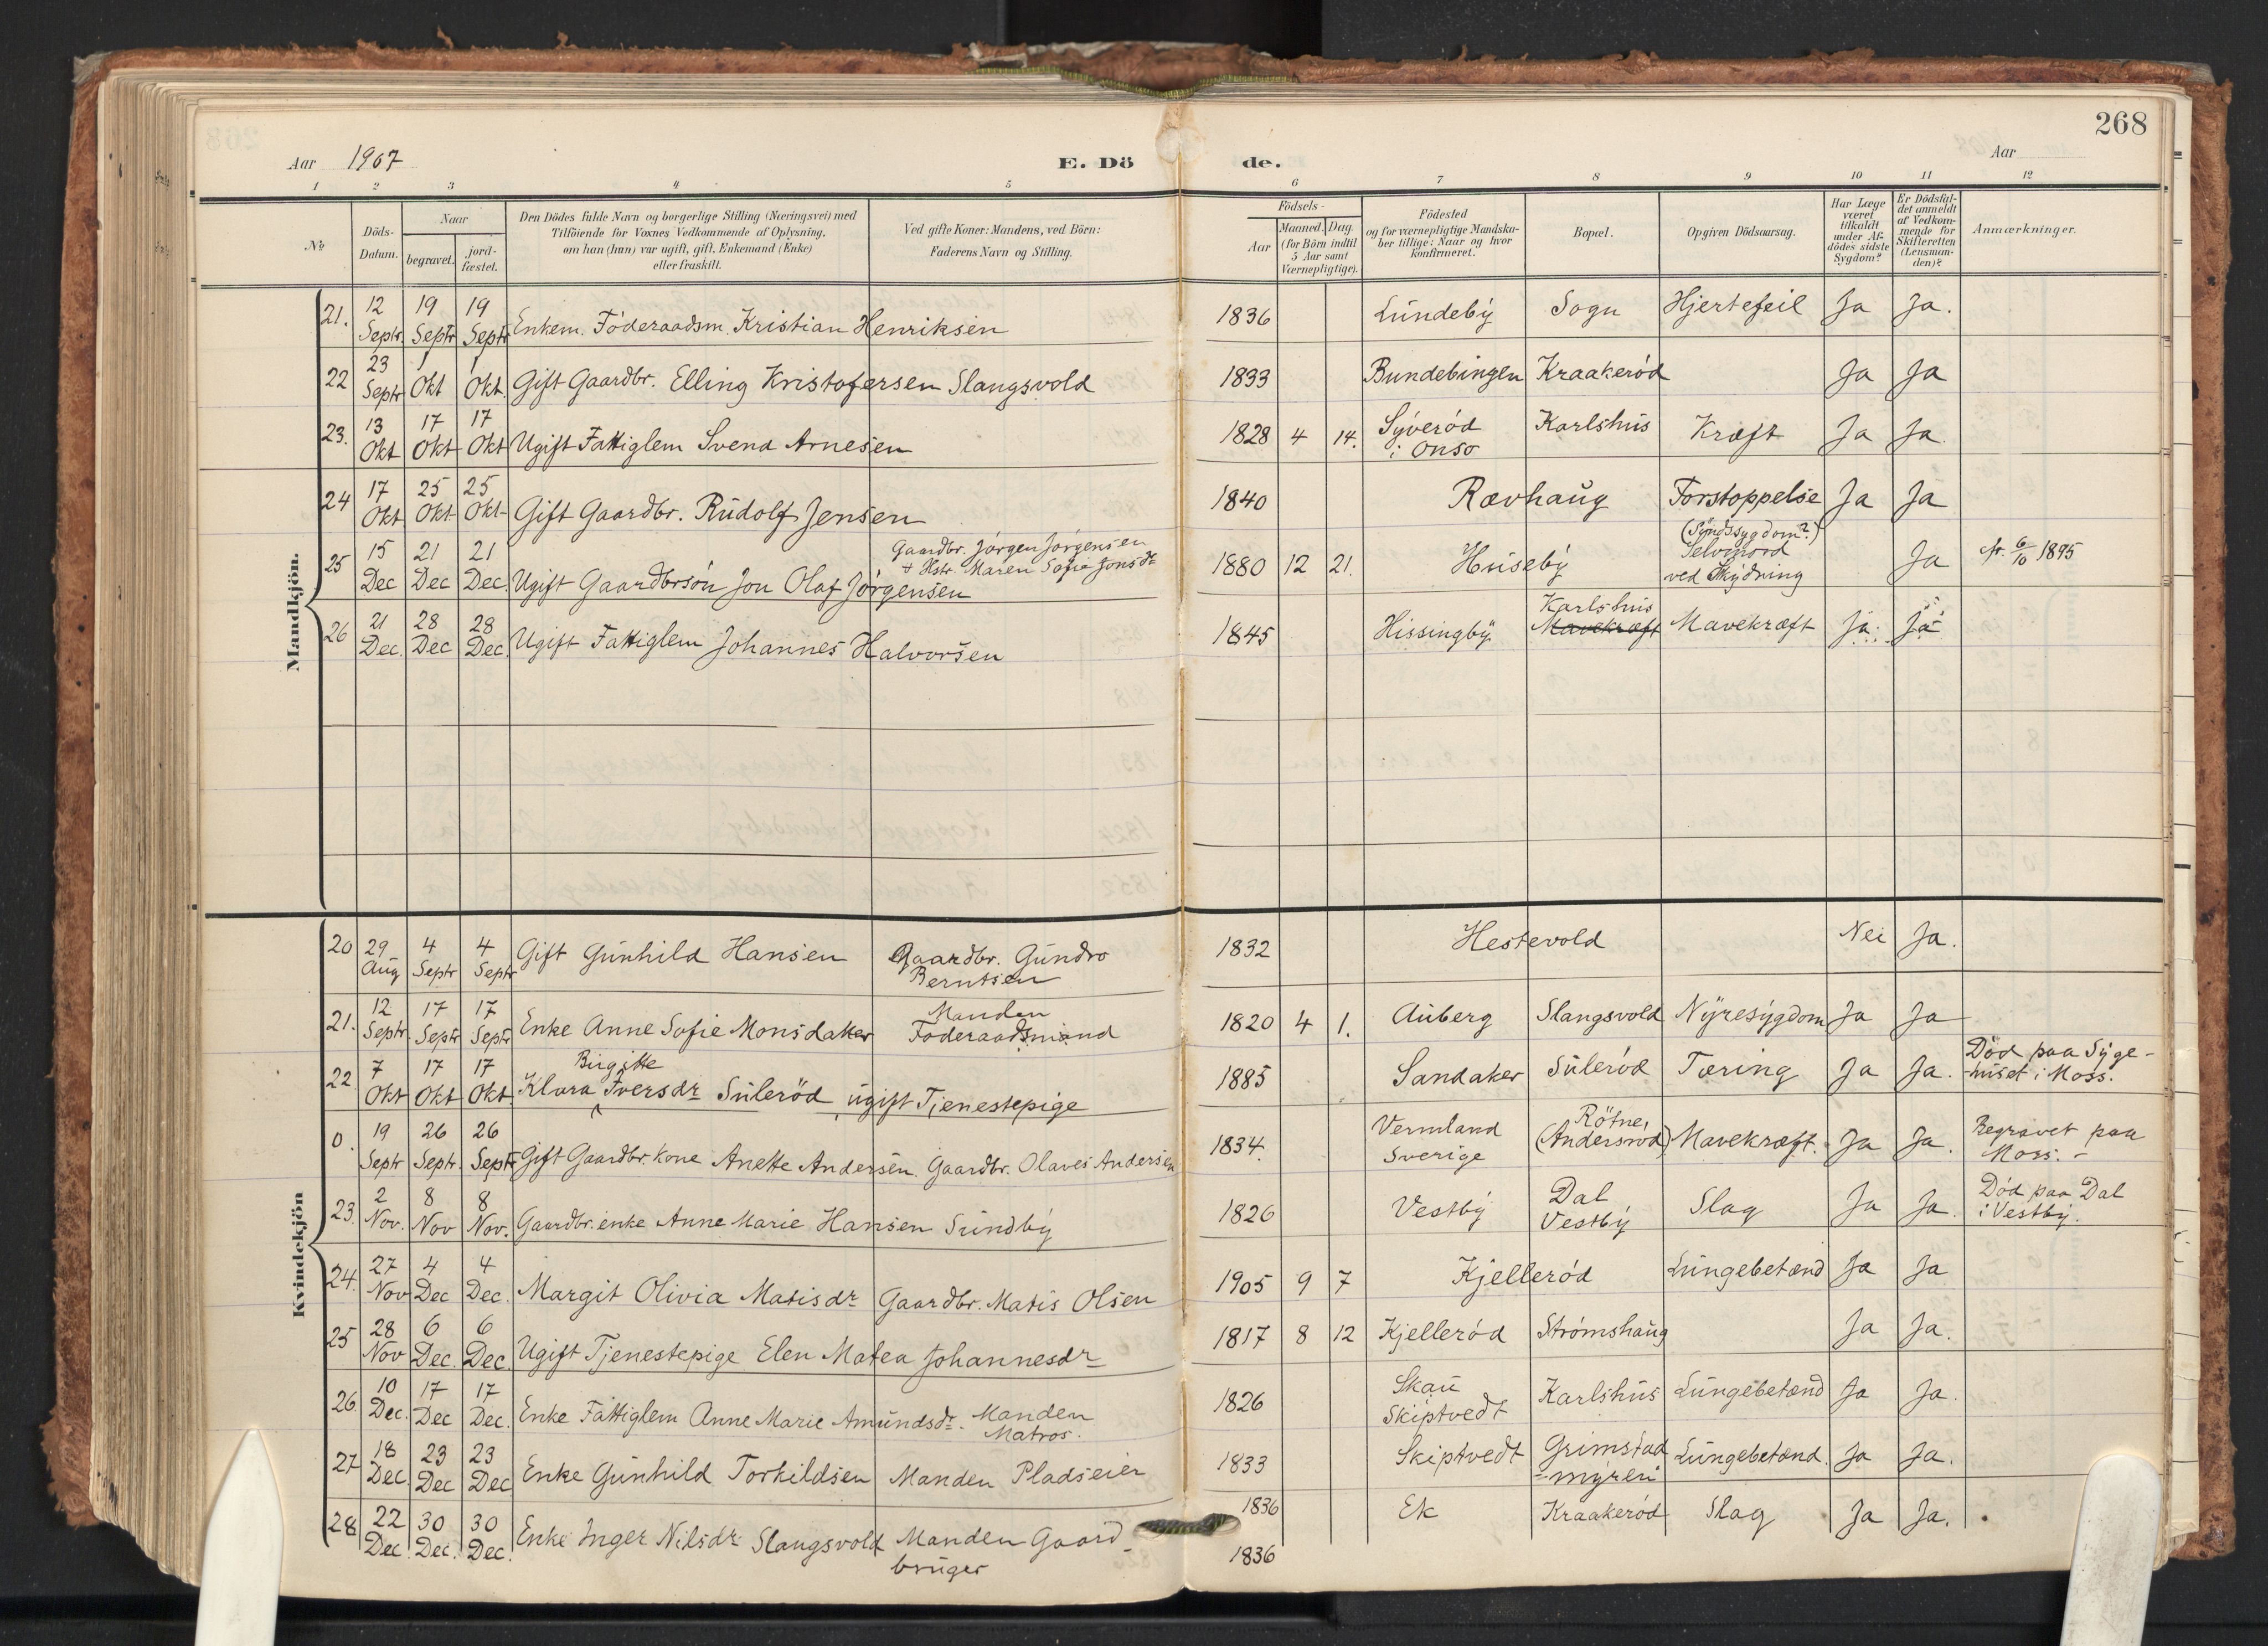 268
Aar 1907 E. Dö de. Aar
1 2 3 4 5 6 7 8 9 10 11 12
№ Döds-Datum. Naar begravet. jord-fæstet. Den Dödes fulde Navn og borgerlige Stilling (Næringsvei) med Tilföiende for Voxnes Vedkommende af Oplysning, om han (hun) var ugift, gift, Enkemand (Enke) eller fraskilt. Ved gifte Koner: Mandens, ved Börn: Faderens Navn og Stilling. Födsels- Aar Maaned. Dag. (for Börn indtil 5 Aar samt Værnepligtige). Födested og for værnepligtige Mandskaber tillige: Naar og hvor konfirmeret. Bopæl. Opgiven Dödsaarsag. Har Læge været tilkaldt under Afdödes sidste Sygdom? Er Dödsfaldet anmeldt af Vedkommende for Skifteretten (Lensmanden)? Anmærkninger.
Mandkjön.
21. 12 Septr. 19 Septr 19 Septr Enkem. Föderaadsm. Kristian Henriksen 1836 Lundeby Sogn Hjertefeil Ja Ja.
22 23 Septr 1 Okt 1 Okt. Gift Gaardbr. Elling Kristofersen Slangsvold 1833 Bundebingen Kraakeröd Ja Ja
23. 13 Okt 17 Okt 17 Okt Ugift Fattiglem Svend Arnesen 1828 4 14. Syveröd i Onsö Karlshus Kræft Ja Ja
24 17 Okt 25 Okt 25 Okt Gift Gaardbr. Rudolf Jensen 1840 Rævhaug Forstoppelse Ja Ja
25 15 Dec 21 Dec 21 Dec. Ugift Gaardbrsön Jon Olaf Jörgensen Gaardbr. Jörgen Jörgensen + Hstr. Maren Sofie Jonsdr 1880 12 21. Huseby (Sindssygdom?) Selvmord ved Skydning Ja Nr. 6/10 1895
26 21 Dec. 28 Dec 28 Dec. Ugift Fattiglem Johannes Halvorsen 1845 Hissingby Karlshus Mavekræft Mavekræft Ja. Ja
Kvindekjön
20 29 Aug 4 Septr 4 Septr Gift Gunhild Hansen Gaardbr. Gundro Berntsen 1832 Hestevold Nei Ja.
21. 12 Septr. 17 Septr 17 Septr Enke Anne Sofie Monsdaker Manden Föderaadsmand 1820 4 1. Auberg Slangsvold Nyresygdom Ja Ja
22. 7 Okt 17 Okt 17 Okt. Klara Birgitte Iversdr Suleröd, ugift Tjenestepige 1885 Sandaker Suleröd Tæring Ja Ja. Död paa Sygehuset i Moss.
0. 19 Septr 26 Septr. 26 Septr Gift Gaardbr. kone Anette Andersen. Gaardbr. Olaves Andersen 1834. Vermland Sverige Rötne, (Andersrod) Mavekræft. Ja Ja. Begravet paa Moss. -
23. 2 Nov. 8 Nov 8 Nov. Gaardbr. enke Anne Marie Hansen Sundby 1826 Vestby Dal Vestby Slag Ja Ja. Död paa Dal i Vestby.
24. 27 Nov 4 Dec 4 Dec. Margit Olivia Matisdr Gaardbr. Matis Olsen 1905 9 7 Kjelleröd Lungebetænd Ja Ja
25 28 Nov 6 Dec. 6 Dec. Ugift Tjenestepige Elen Matea Johannesdr 1817 8 12 Kjelleröd Strömshaug Ja Ja.
26 10 Dec. 17 Dec 17 Dec. Enke Fattiglem Anne Marie Amundsdr. Manden Matros. 1826 Skau Skiptvedt Karlshus Lungebetænd Ja Ja.
27 18 Dec. 23 Dec 23 Dec Enke Gunhild Torkildsen Manden Pladseier 1833 Skiptvedt Grimstadmyren Lungebetænd. Ja Ja.
28 22 Dec 30 Dec. 30 Dec. Enke Inger Nilsdr Slangsvold Manden Gaardbruger 1836 Ek Kraakeröd Slag Ja Ja.
1836